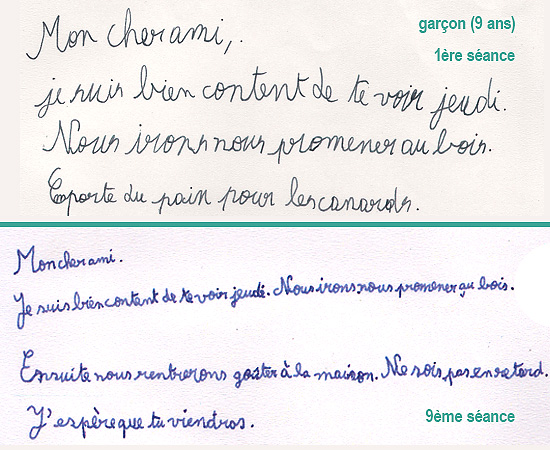 Mon cher ami,.
garçon (9 ans)
1ère séance
je suis bien content de te voir jeudi.
Nous irons nous promener au bois.
Eporte du pain pour les canards.
Mon cher ami.
Je suis bien content de te voir jeudi. Nous irons nous promener au bois.
Ensuite nous rentrerons goûter à la maison. Ne sois pas en retard.
J'espère que tu viendras.
9ème séance